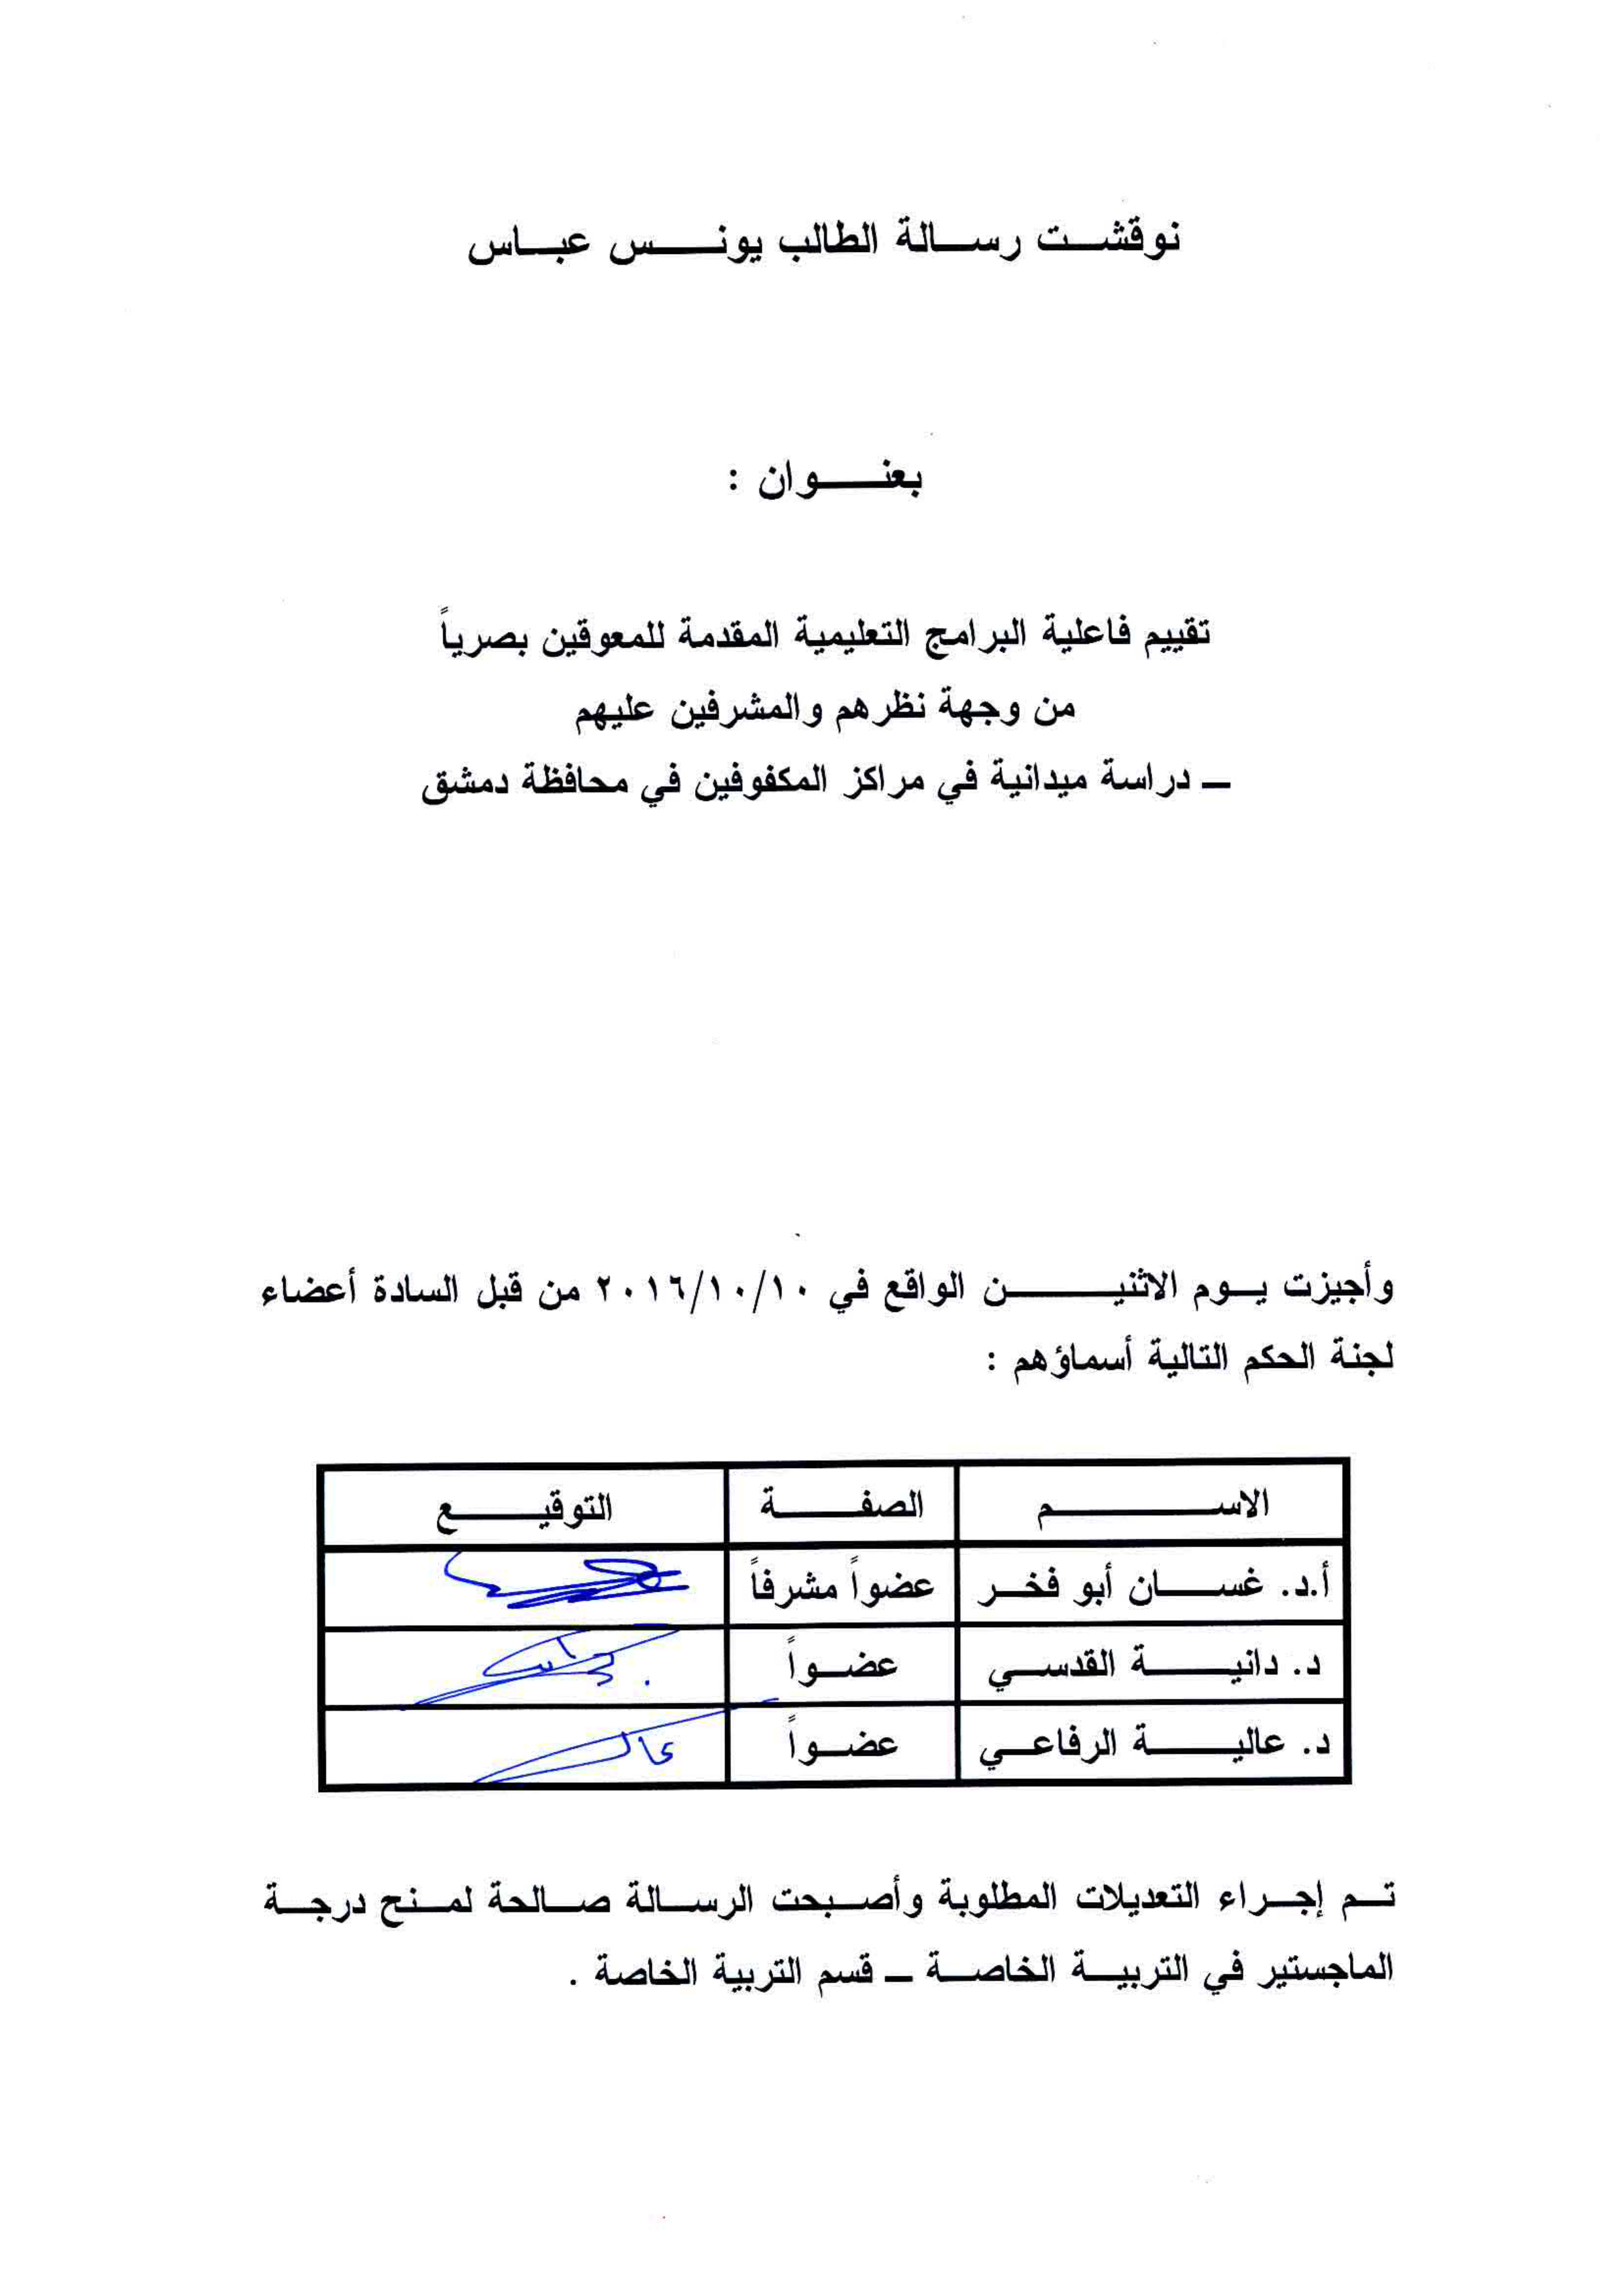 نوقشت رسالة الطالب يونس عباس
بعنوان :
تقييم فاعلية البرامج التعليمية المقدمة للمعوقين بصرياً
من وجهة نظرهم والمشرفين عليهم
ـ دراسة ميدانية في مراكز المكفوفين في محافظة دمشق
وأجيزت يوم الاثنين الواقع في ٢٠١٦/١٠/١٠ من قبل السادة أعضاء
لجنة الحكم التالية أسماؤهم :
الاسم الصفة التوقيع
أ.د. غسان أبو فخر عضواً مشرفاً
د. دانية القدسي عضواً
د. عالية الرفاعي عضواً
تم إجراء التعديلات المطلوبة وأصبحت الرسالة صالحة لمنح درجة
الماجستير في التربية الخاصة ـ قسم التربية الخاصة .